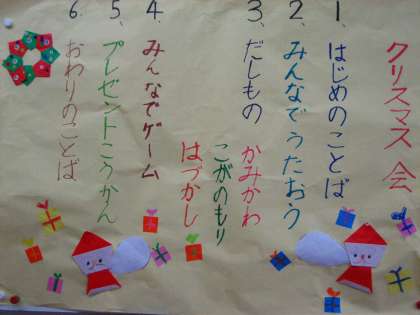 クリスマス会
1. はじめのことば
2. みんなでうたおう
3. だしもの
かみかわ
こがのもり
はづかし
4. みんなでゲーム
5. プレゼントこうかん
6. おわりのことば